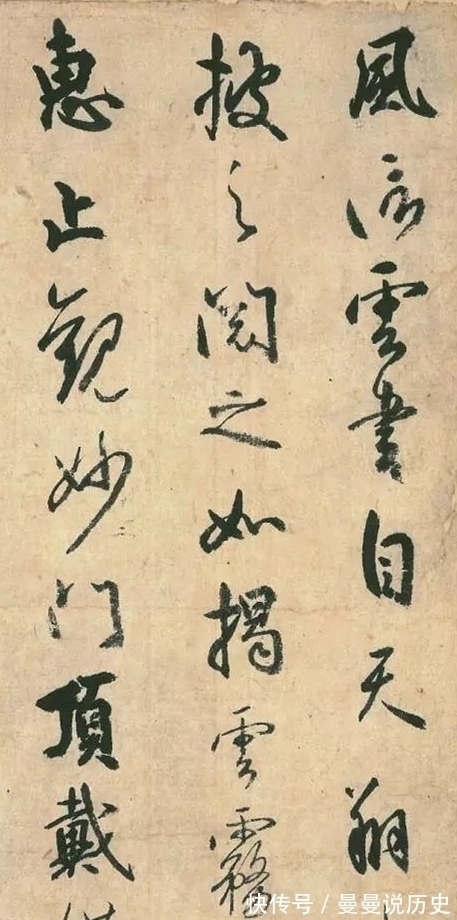 風信雲書自天翔
披之閱之如揭雲霧
惠止觀妙門頂戴
快传号/曼曼说历史